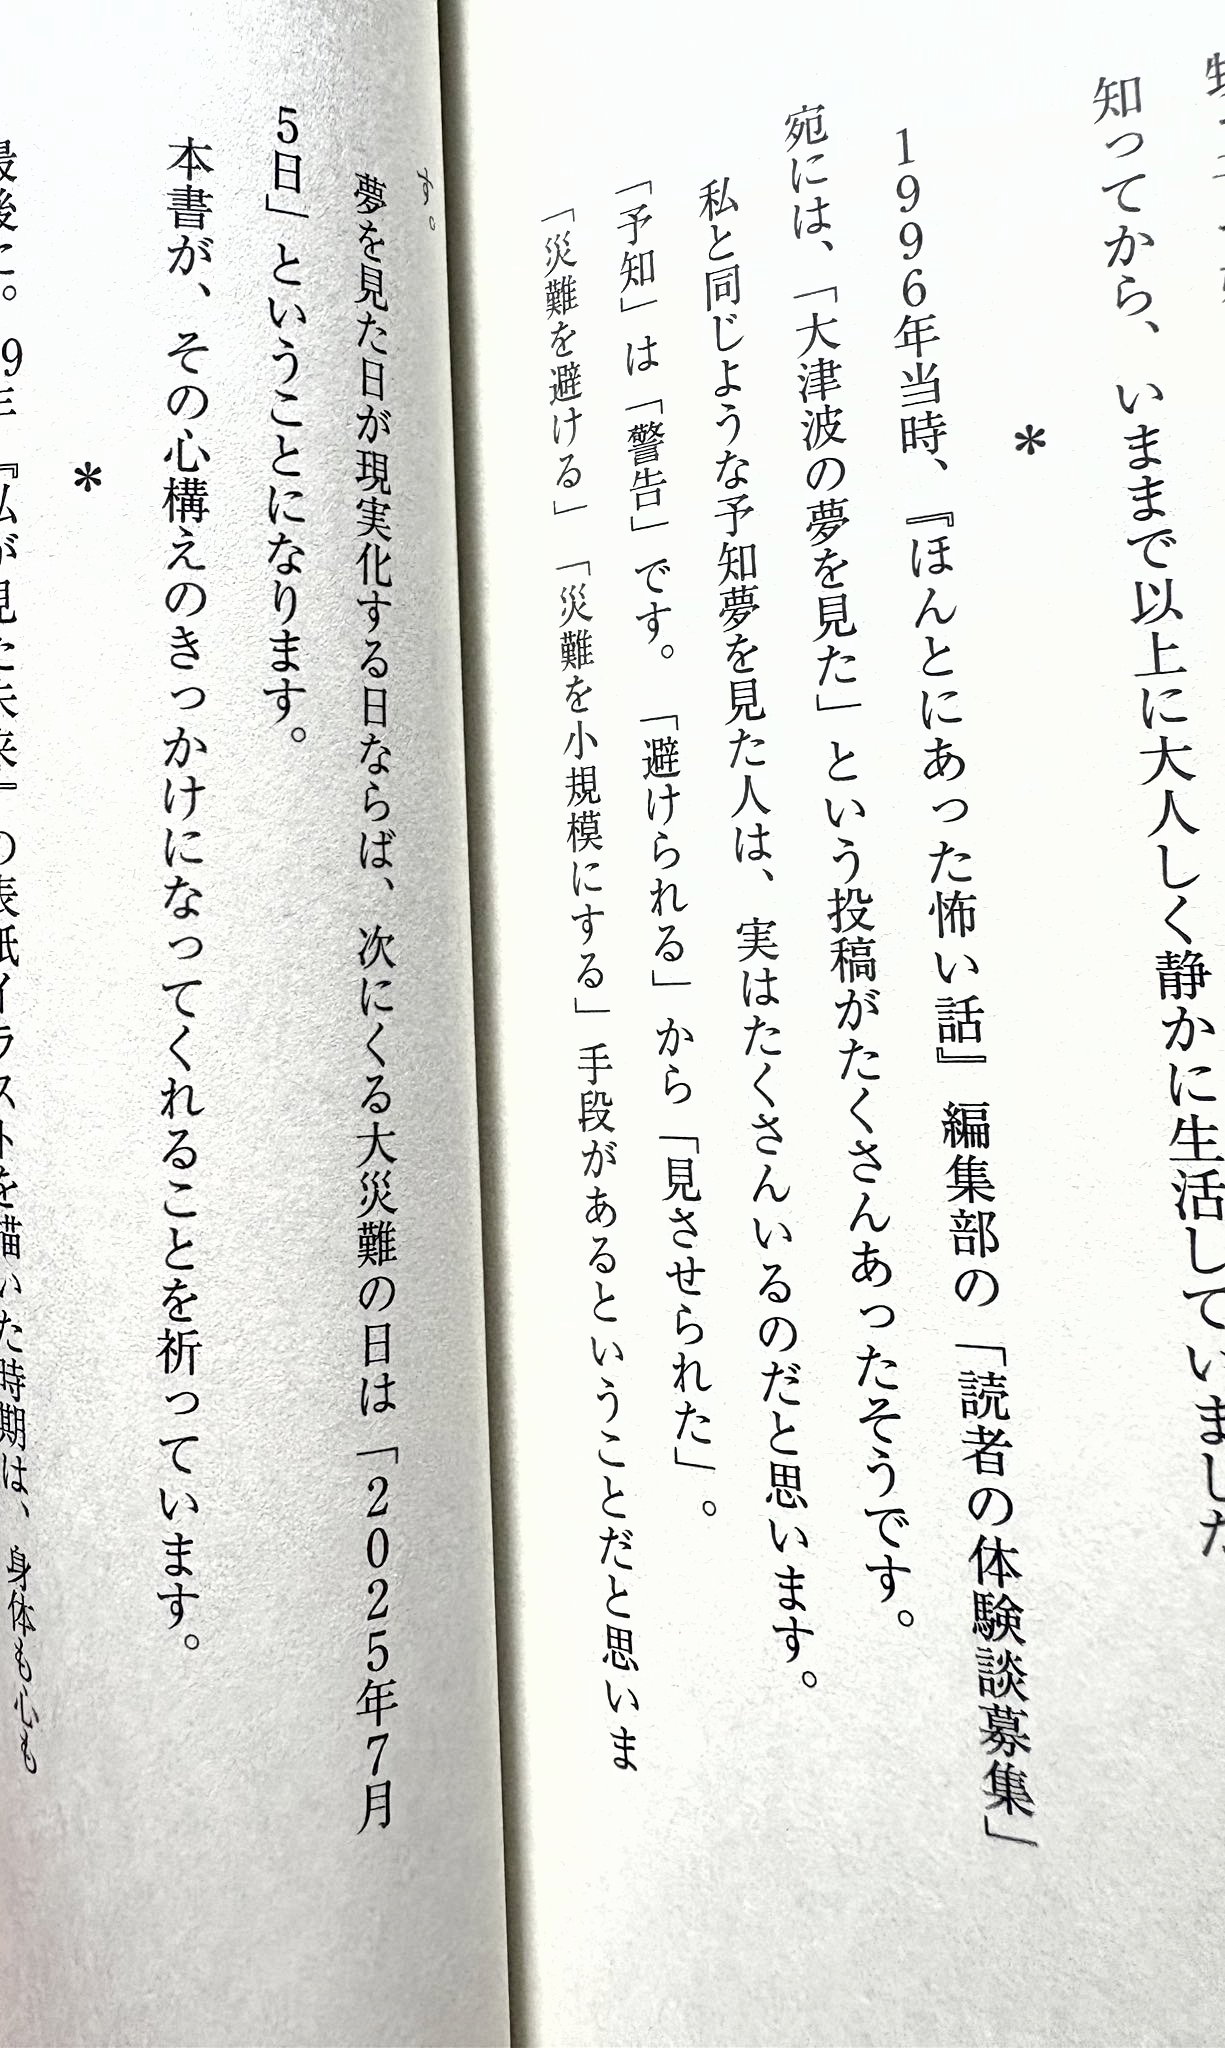 知ってから、いままで以上に大人しく静かに生活していました
*
1996年当時、『ほんとにあった怖い話』編集部の「読者の体験談募集」
宛には、「大津波の夢を見た」という投稿がたくさんあったそうです。
私と同じような予知夢を見た人は、実はたくさんいるのだと思います。
「予知」は「警告」です。「避けられる」から「見させられた」。
「災難を避ける」「災難を小規模にする」手段があるということだと思いま
す。
夢を見た日が現実化する日ならば、次にくる大災難の日は「2025年7月
5日」ということになります。
本書が、その心構えのきっかけになってくれることを祈っています。
*
最後に。99年『私が見た未来』の表紙イラストを描いた時期は、身体も心も